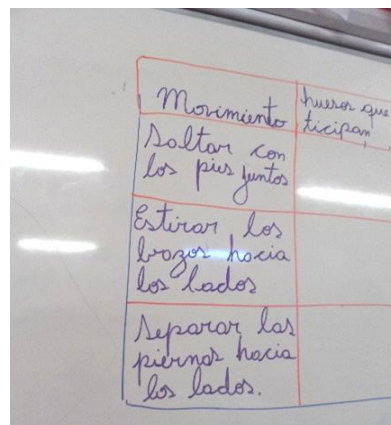 Movimiento
huesos que
ticipan
Saltar con
los pies juntos
Estirar los
brazos hacia
los lados
Separar las
piernas hacia
los lados.